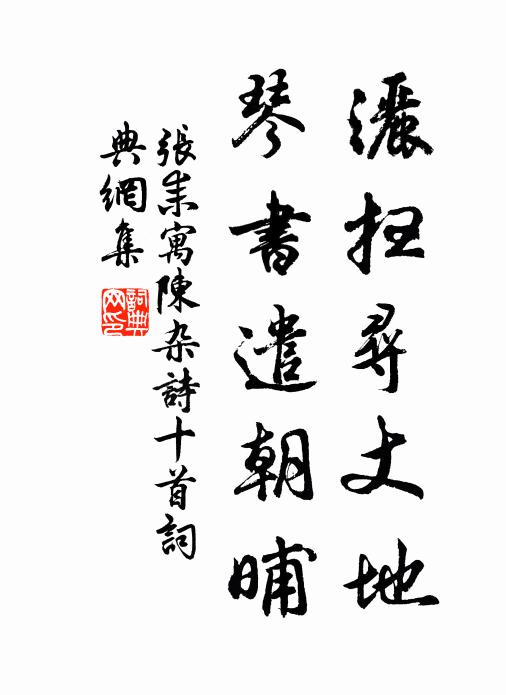 灑扫尋丈地
琴書遣朝晡
張耒寓陳杂詩十首詞
典網集
詞典
网印